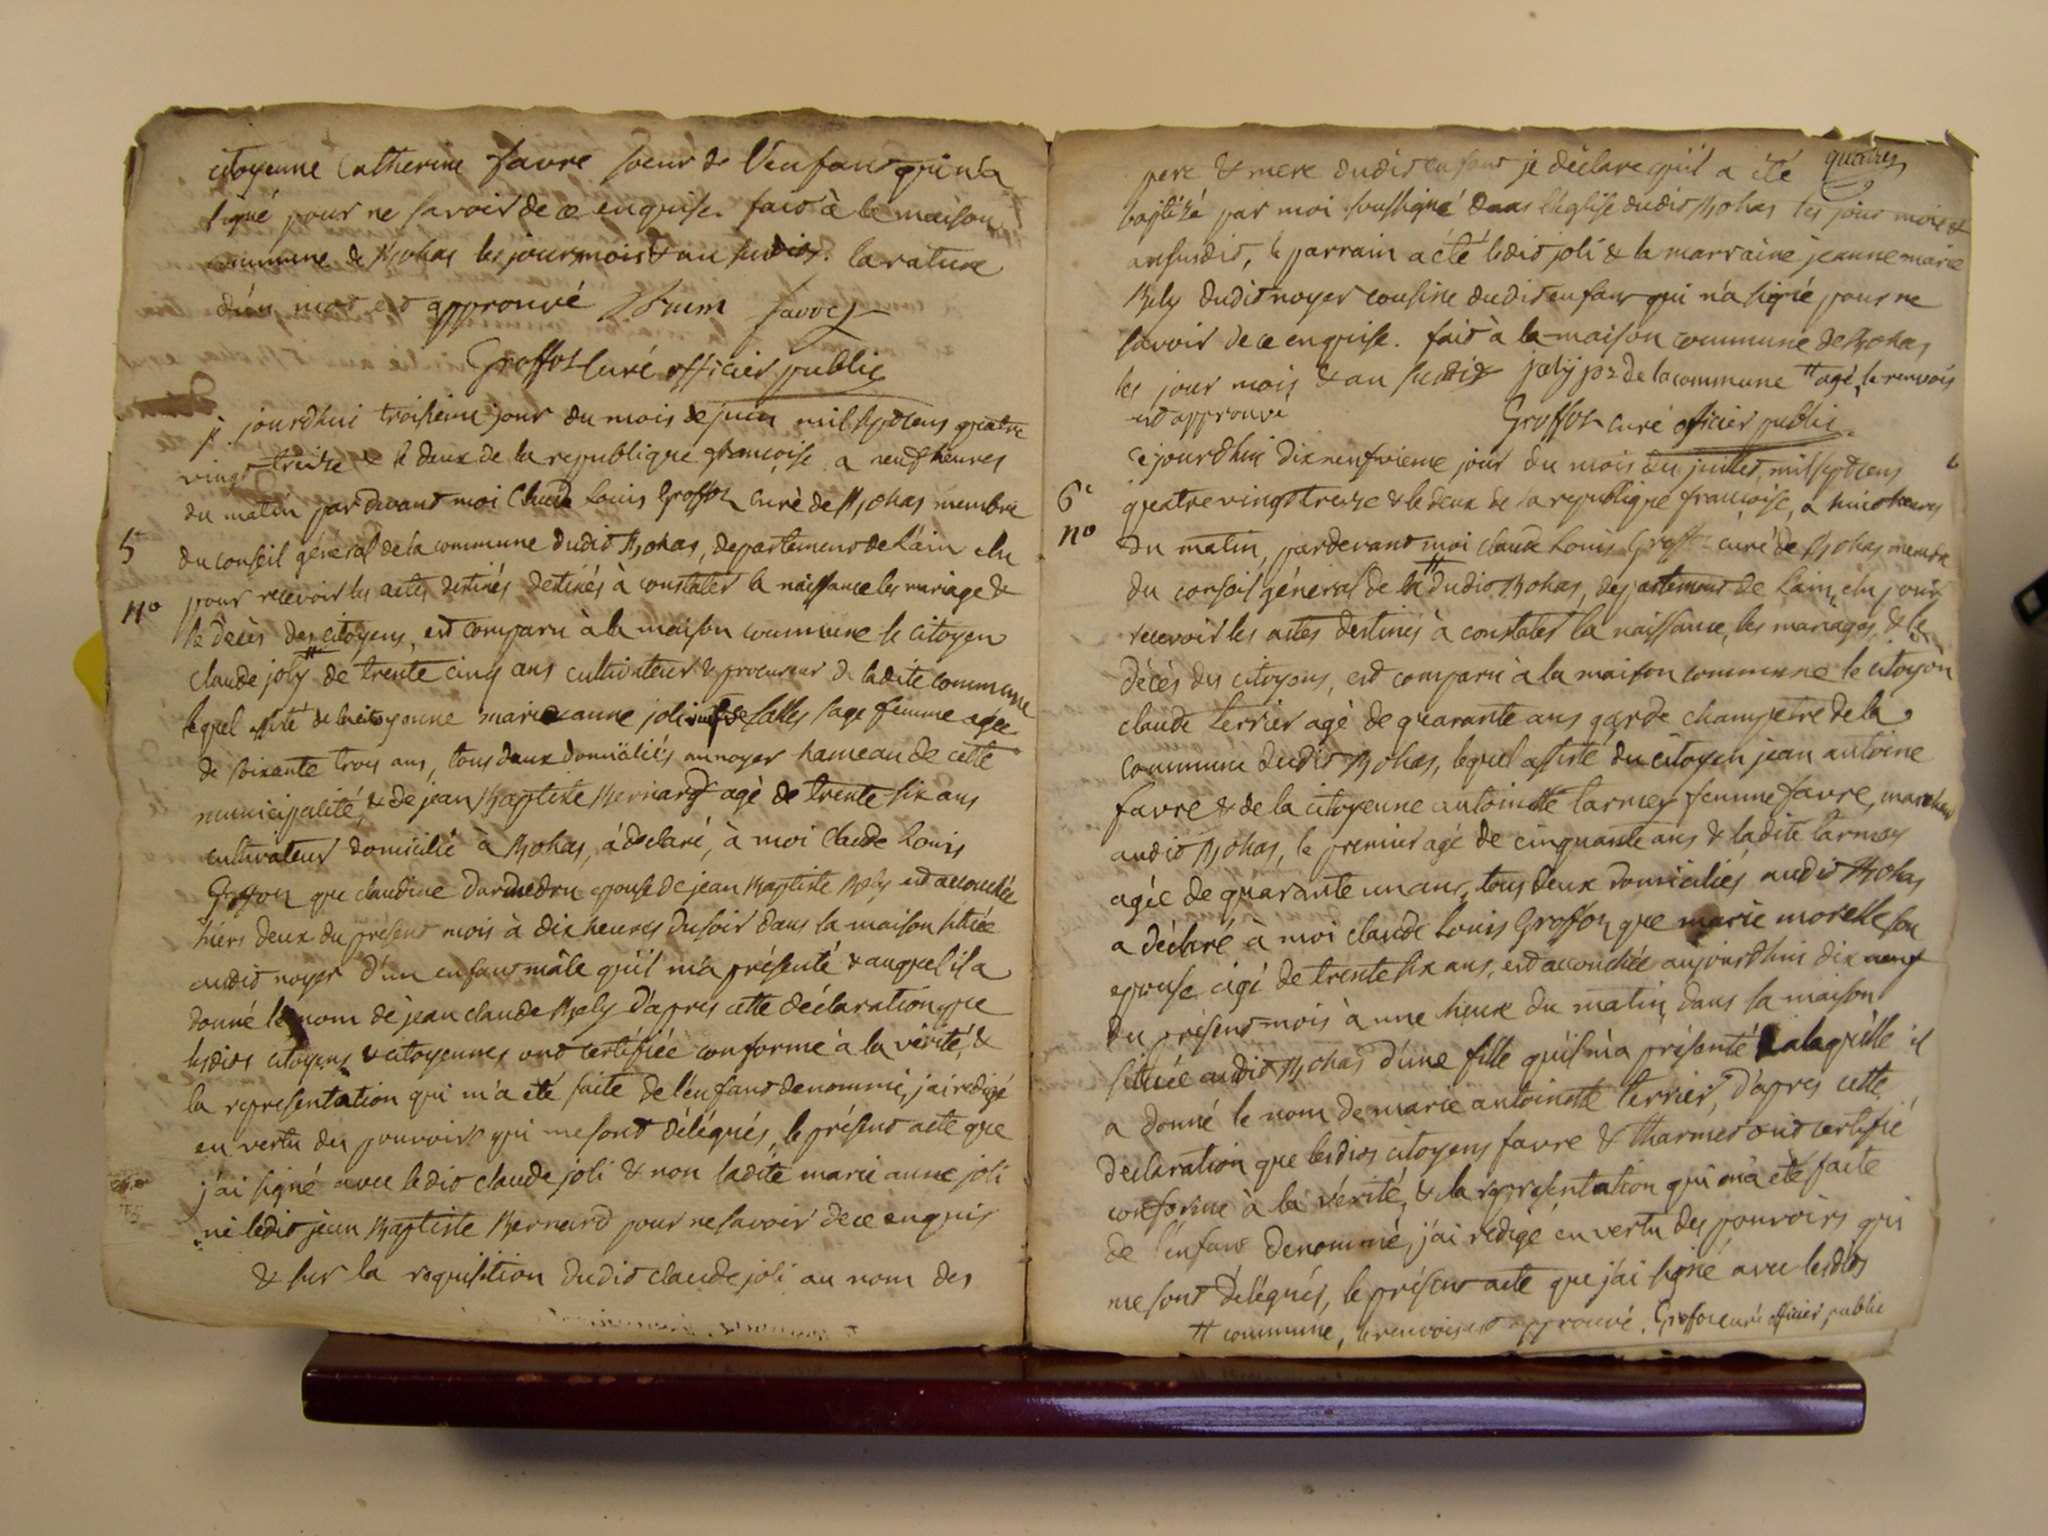 citoyenne Catherine favre soeur de l'enfant qui n'a
signé pour ne savoir de ce enquise. fait à la maison
commune de Bohas les jour mois & an susdits. la rature
d'un mot est approuvé favre
Groffoz curé officier public
jourdhui troisieme jour du mois de juin mil sept cens quatre
vingt treize & le deux de la republique françoise a neuf heures
du matin par devant moi Claude Louis Groffoz curé de Bohas membre
5 du conseil général de la commune dudit Bohas, departement de l'ain elu
no pour recevoir les actes destinés destinés à constater la naissance les mariage &
le décès des citoyens, est comparu à la maison commune le citoyen
claude joly # de trente cinq ans cultivateur & procureur de ladite commune
lequel assité de la citoyenne marie anne joli salles sage femme agée
de soixante trois ans, tous deux domiciliés au noyer hameau de cette
municipalité, & de jean Baptiste Bernard agé de trente six ans
cultivateur domicilié à Bohas, a déclaré, à moi Claude Louis
Groffoz que claudine epouse de jean Baptiste Bely est accouchée
hiers deux du présent mois à dix heures du soir dans la maison située
audit noyer d'un enfant mâle qu'il m'a présenté & auquel il a
donné le nom de jean claude Bely d'apres cette déclaration que
lesdits citoyens & citoyennes ont certifiée conforme à la vérité, &
la representation qui m'a eté faite de l'enfant denommé, j'ai redigé
en vertu des pouvoirs qui me sont délégués, le présent acte que
j'ai signé avec ledit claude joli & non ladite marie anne joli
ni ledit jean Baptiste Bernard pour ne savoir de ce enquis
& sur la requisition dudit claude joli au nom des
quatres
pere & mere dudit enfant je déclare qu'il a été
baptisé par moi soussigné dans l'église dudit Bohas les jour mois &
an susdit, le parrain a été ledit joli & la marraine jeanne marie
Bely dudit noyer cousine dudit enfant qui n'a signé pour ne
savoir de ce enquise. fait à la maison commune de Bohas
les jour mois & an susdit joly pr de la commune # agé, le renvois
est approuvé Groffoz curé officier public.
Cejourdhui dix neufvieme jour du mois du juillet, mil sept cens
6e quatre vingt treize & le deux de la republique francoise, a huit heures
no du matin, pardevant moi claude Louis Groffoz curé de Bohas membre
du conseil général de la # dudit Bohas, departement de l'ain, elu pour
recevoir les actes destinés à constater la naissance, les mariages, & le
décès des citoyens, est comparu à la maison commune le citoyen
claude terrier agé de quarante ans garde champetre de la
commune dudit Bohas, lequel assisté du citoyen jean antoine
favre & de la citoyenne antoinette tarmey femme favre,
audit Bohas, le premier agé de cinquante ans & ladite tarmey
agée de quarante un ans, tous deux domiciliés audit Bohas
a déclaré à moi claude Louis Groffoz que marie morelle son
epouse agé de trente six ans, est accouchée aujourdhui dix neuf
du présent mois à une heure du matin, dans sa maison
située audit Bohas d'une fille qu'il m'a présenté & a laquelle il
a donné le nom de marie antoinette terrier, d'apres cette
déclaration que lesdits citoyens favre & tharmet ont certifié
conforme à la vérité, & la representation qui m'a été faite
de l'enfant denommé, j'ai redigé en vertu des pouvoirs qui
me sont délégués, le présent acte que j'ai signé avec lesdits
# commune, le renvois est approuvé. Groffoz curé officier public